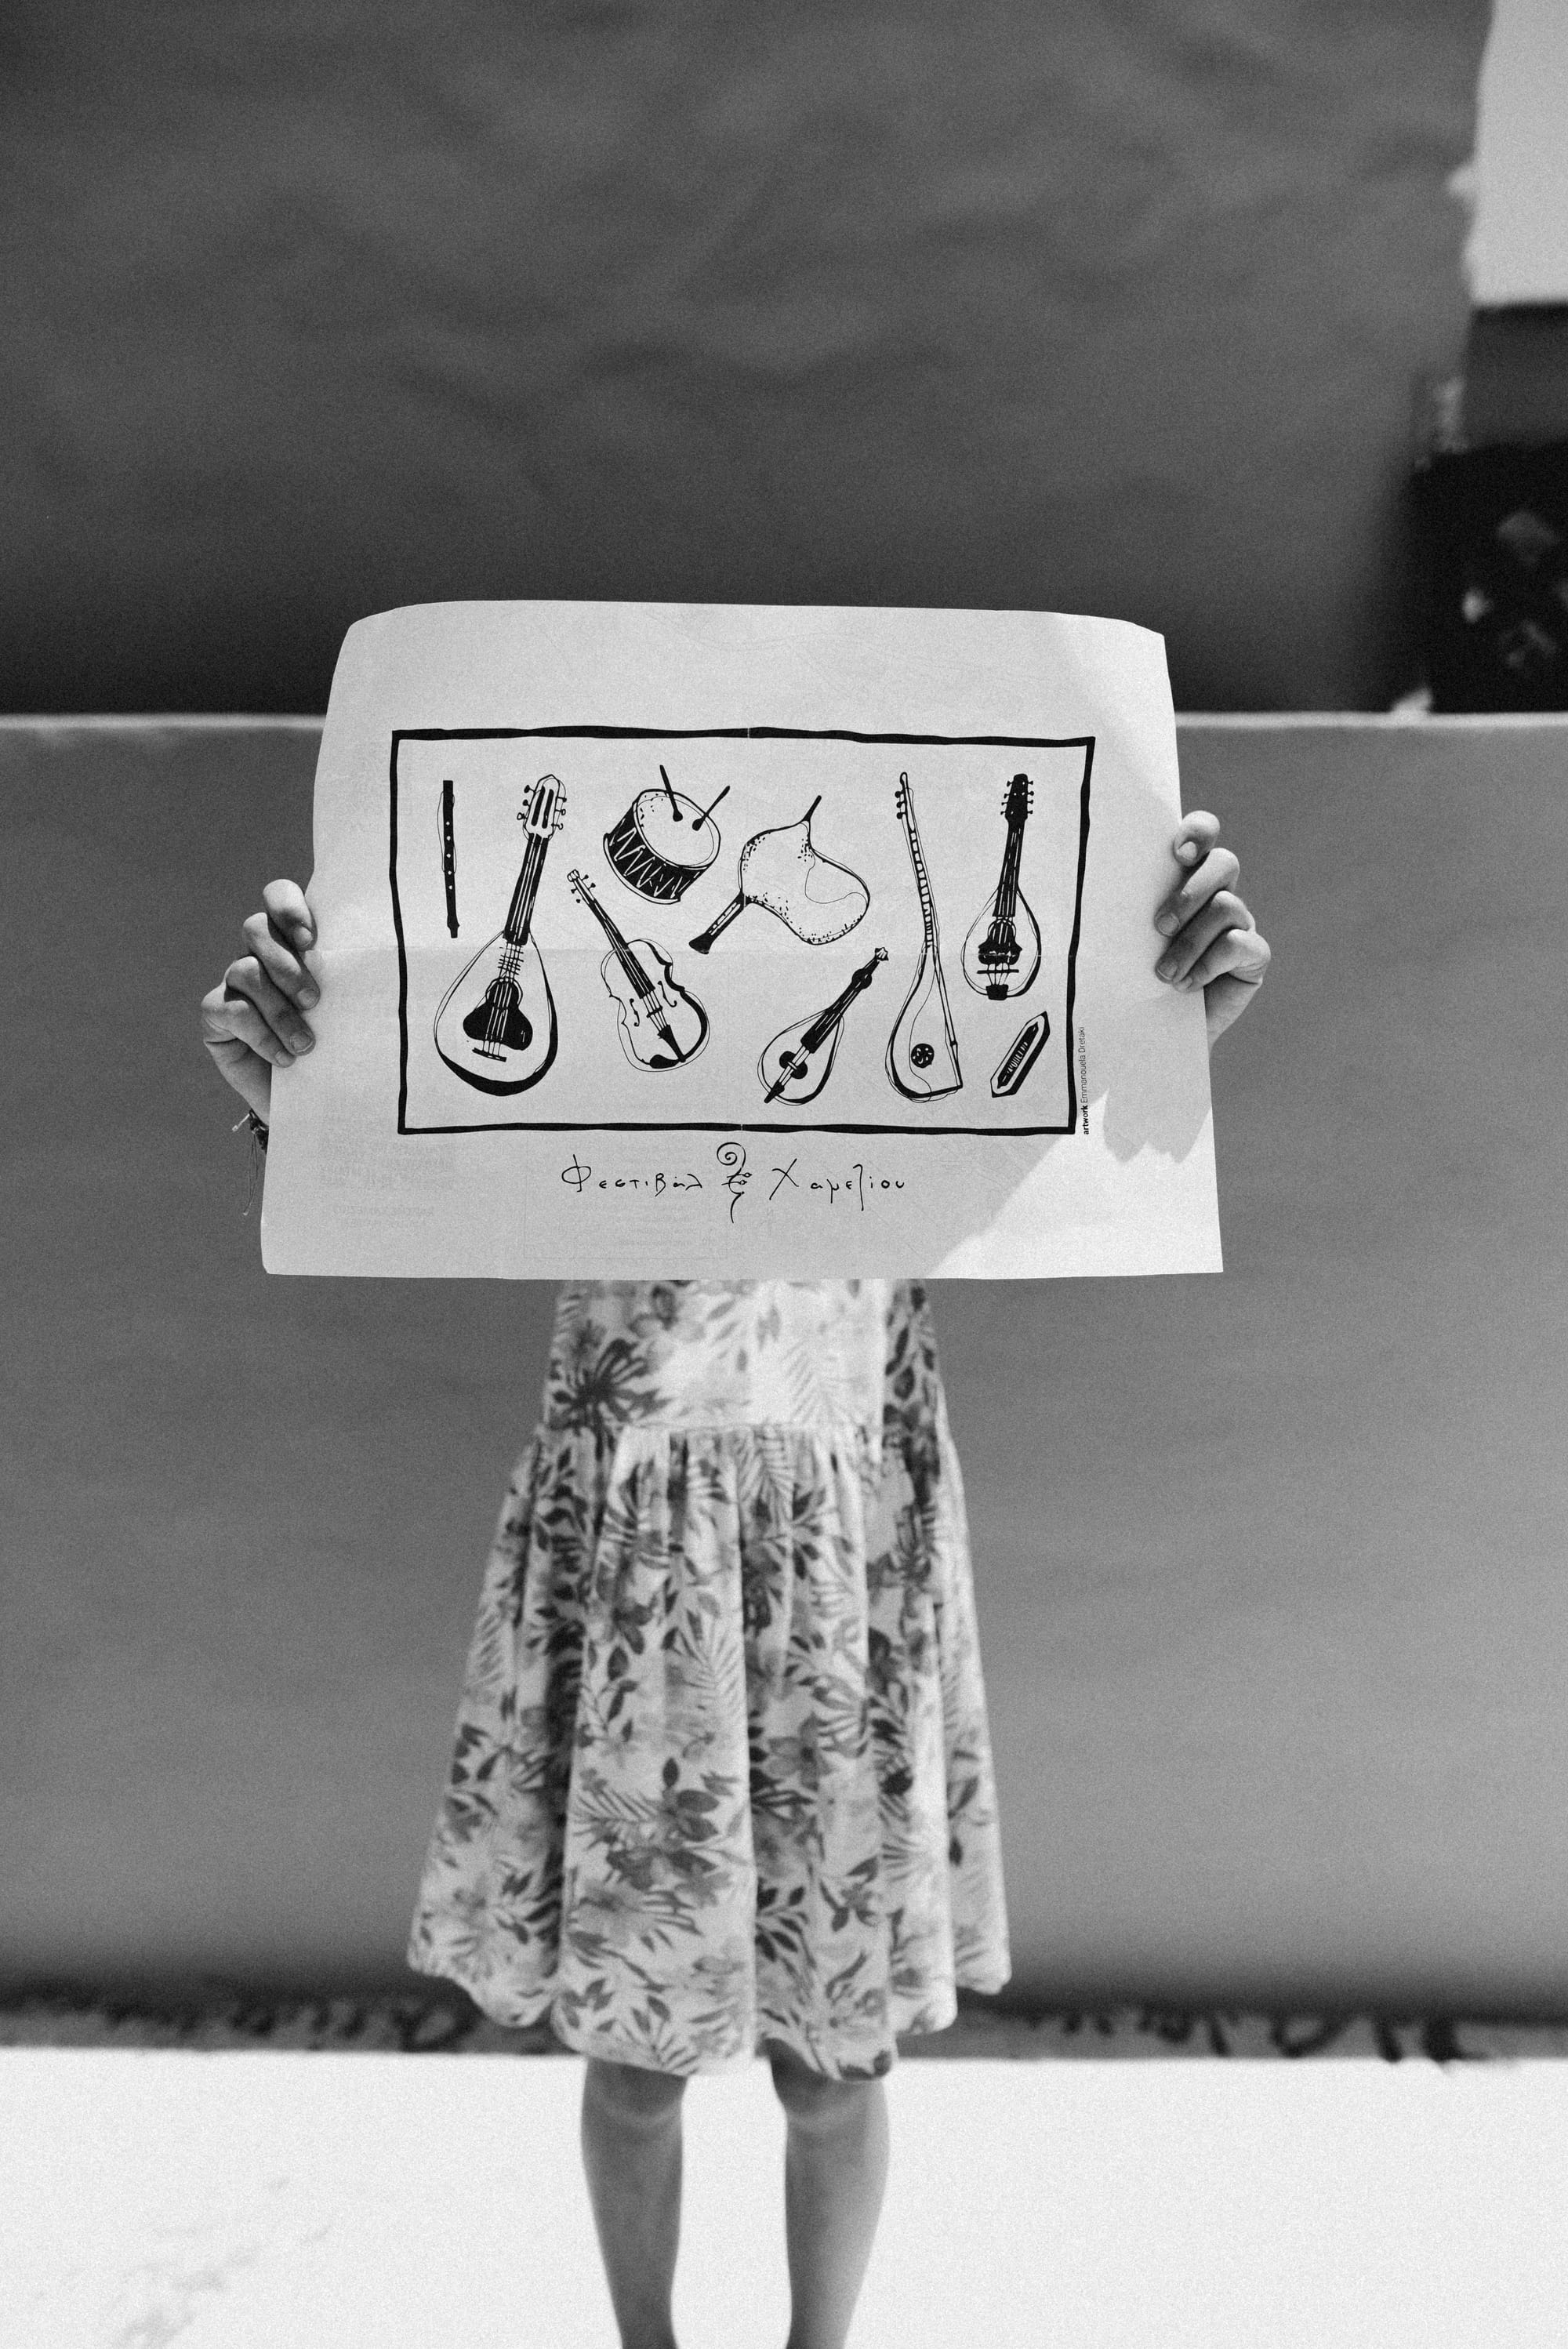 artwork Emmanouela Dretaki
Φεστιβάλ Χαμεζίου